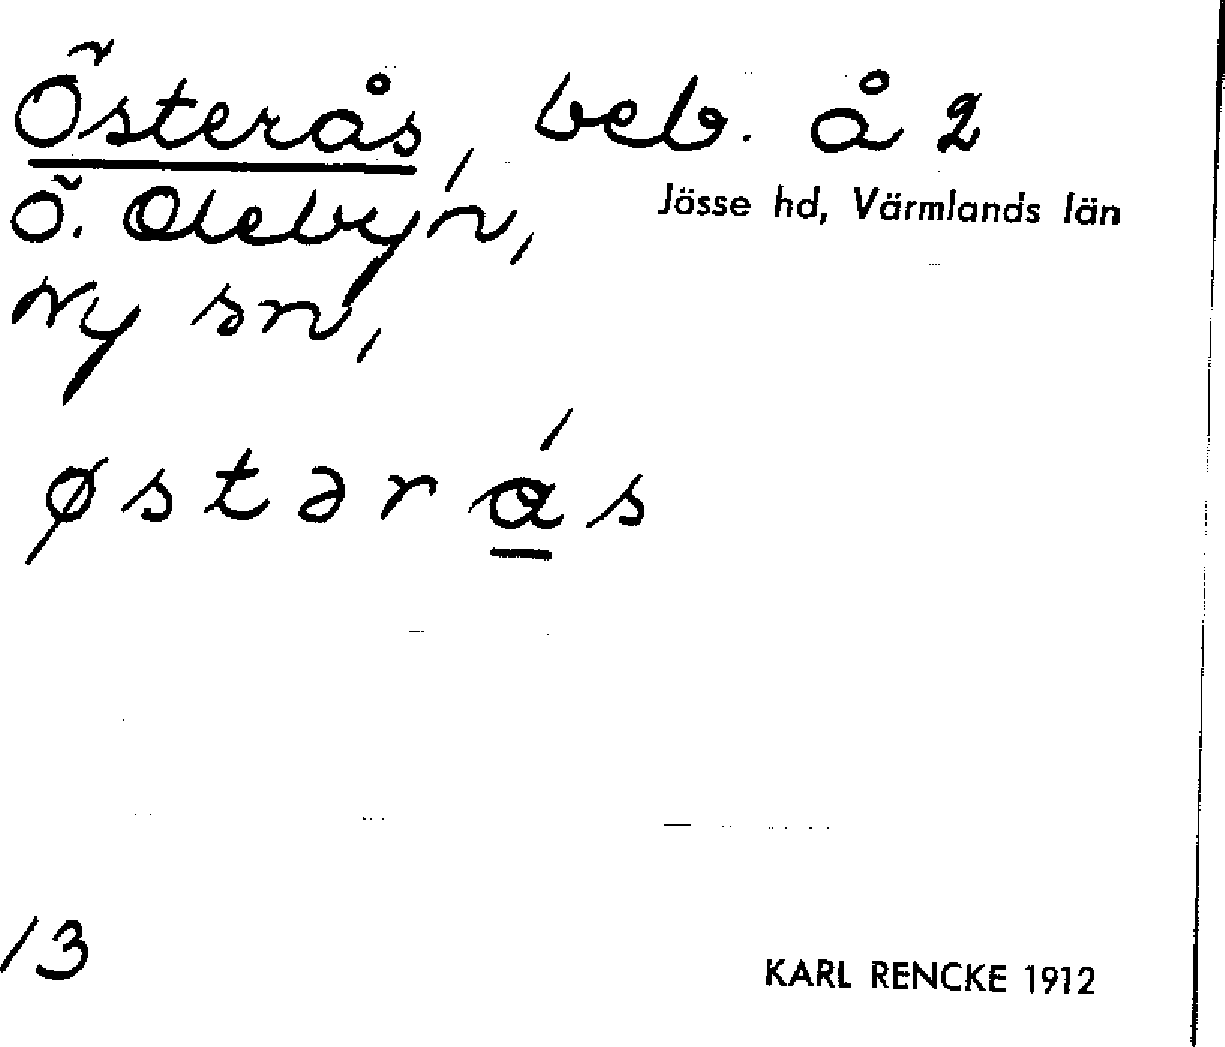 Österås, beb. å 2
Ö. Olebyn,
Jösse hd, Värmlands län
Ny sn,
østərás
13
KARL RENCKE 1912